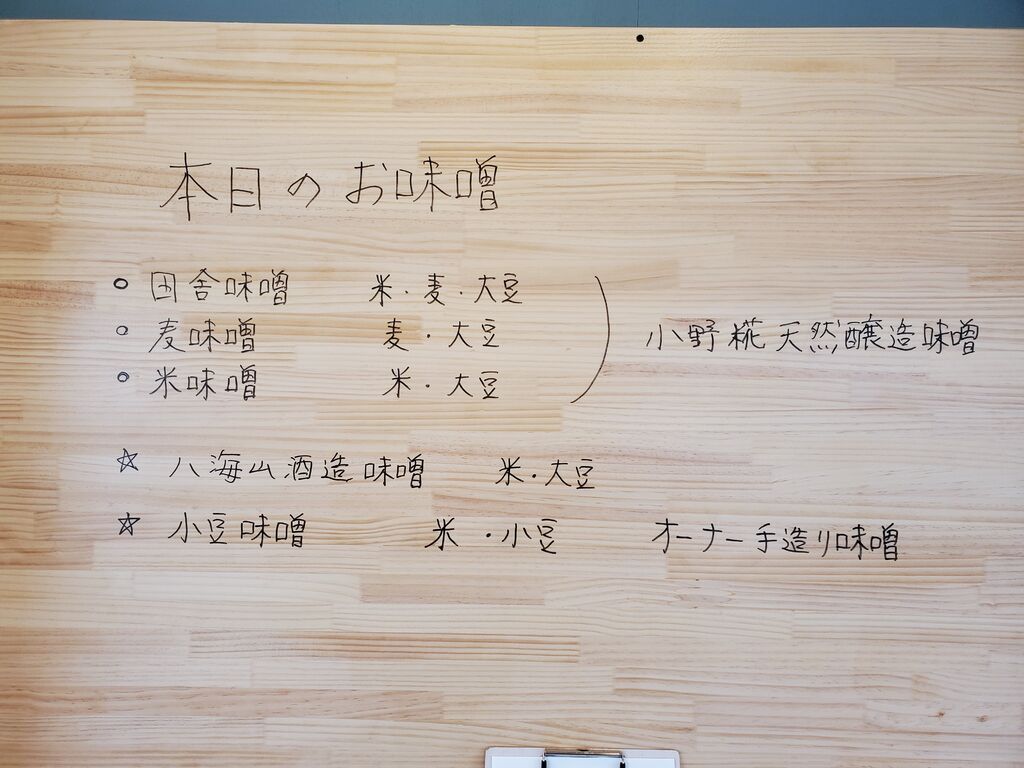 本日のお味噌
○ 田舎味噌 米・麦・大豆
○ 麦味噌 麦・大豆 ) 小野糀天然醸造味噌
○ 米味噌 米・大豆
☆ 八海山酒造味噌 米・大豆
☆ 小豆味噌 米・小豆 オーナー手造り味噌